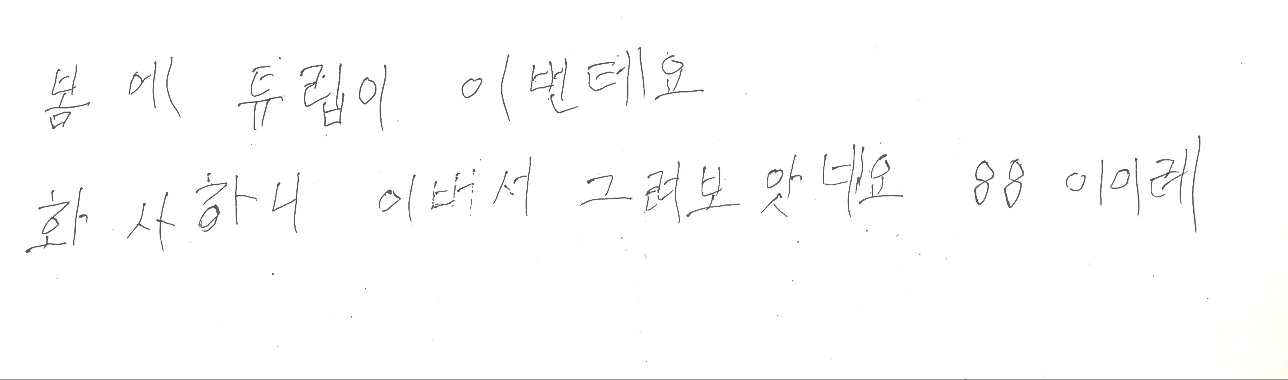 봄에 튜립이 이밴데요
화사하니 이벼서 그려보앗네요 88 이이레